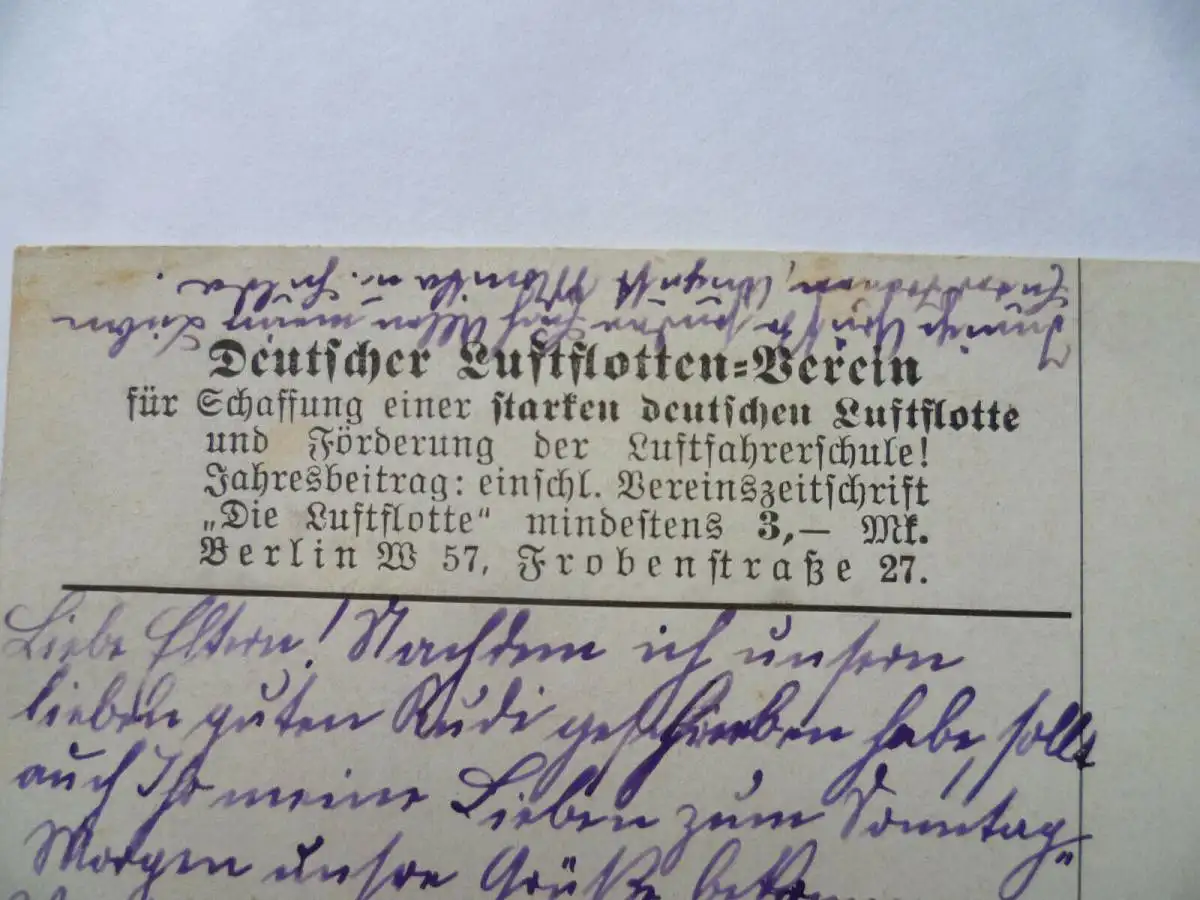 Innige Grüße sendet Euch Allen meine Lieben
August u.
Deutscher Luftflotten=Verein
für Schaffung einer starken deutschen Luftflotte
und Förderung der Luftfahrerschule!
Jahresbeitrag: einschl. Vereinszeitschrift
„Die Luftflotte“ mindestens 3,— Mk.
Berlin W 57, Frobenstraße 27.
Liebe Eltern! Nachdem ich unsern
lieben guten Rudi geschrieben habe, sollt
auch Ihr meine Lieben zum Sonntag„
Morgen unsre Grüße